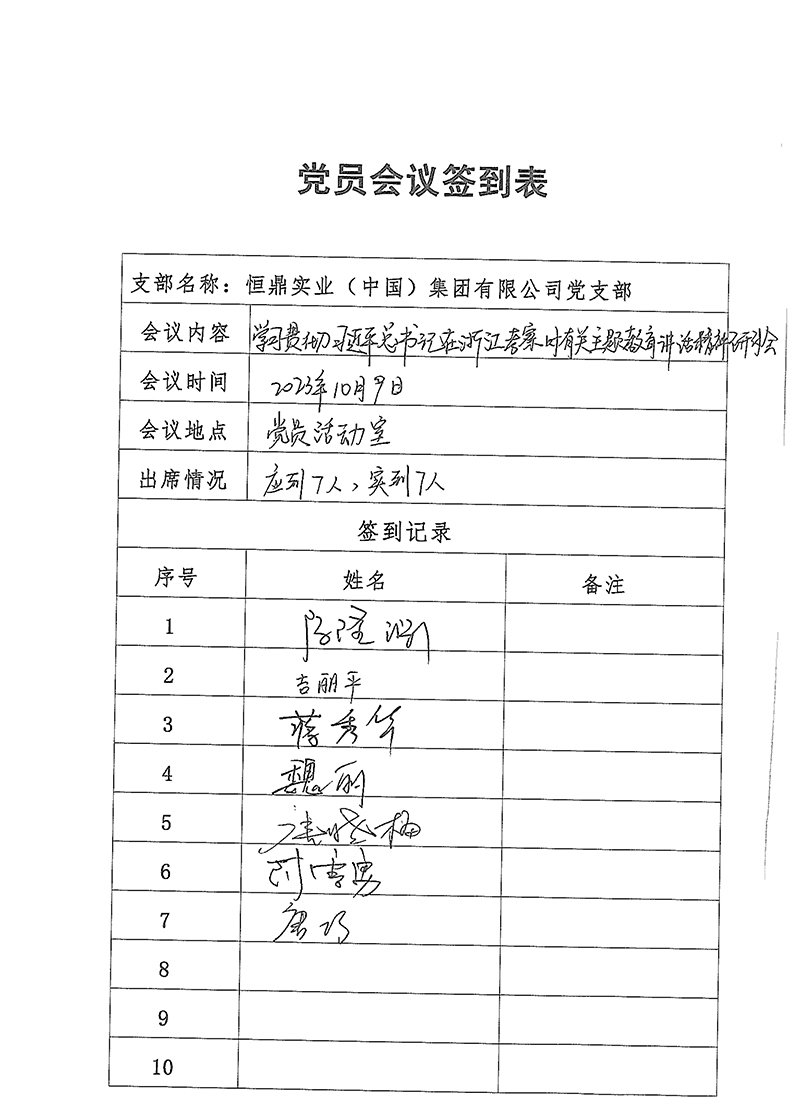 党员会议签到表
支部名称：恒鼎实业（中国）集团有限公司党支部
会议内容 学习贯彻习近平总书记在浙江考察时有关主题教育讲话精神研讨会
会议时间 2023年10月9日
会议地点 党员活动室
出席情况 应到7人，实到7人
签到记录
序号 姓名 备注
1
2 吉丽平
3 蒋秀华
4 魏丽
5
6
7 唐巧
8
9
10